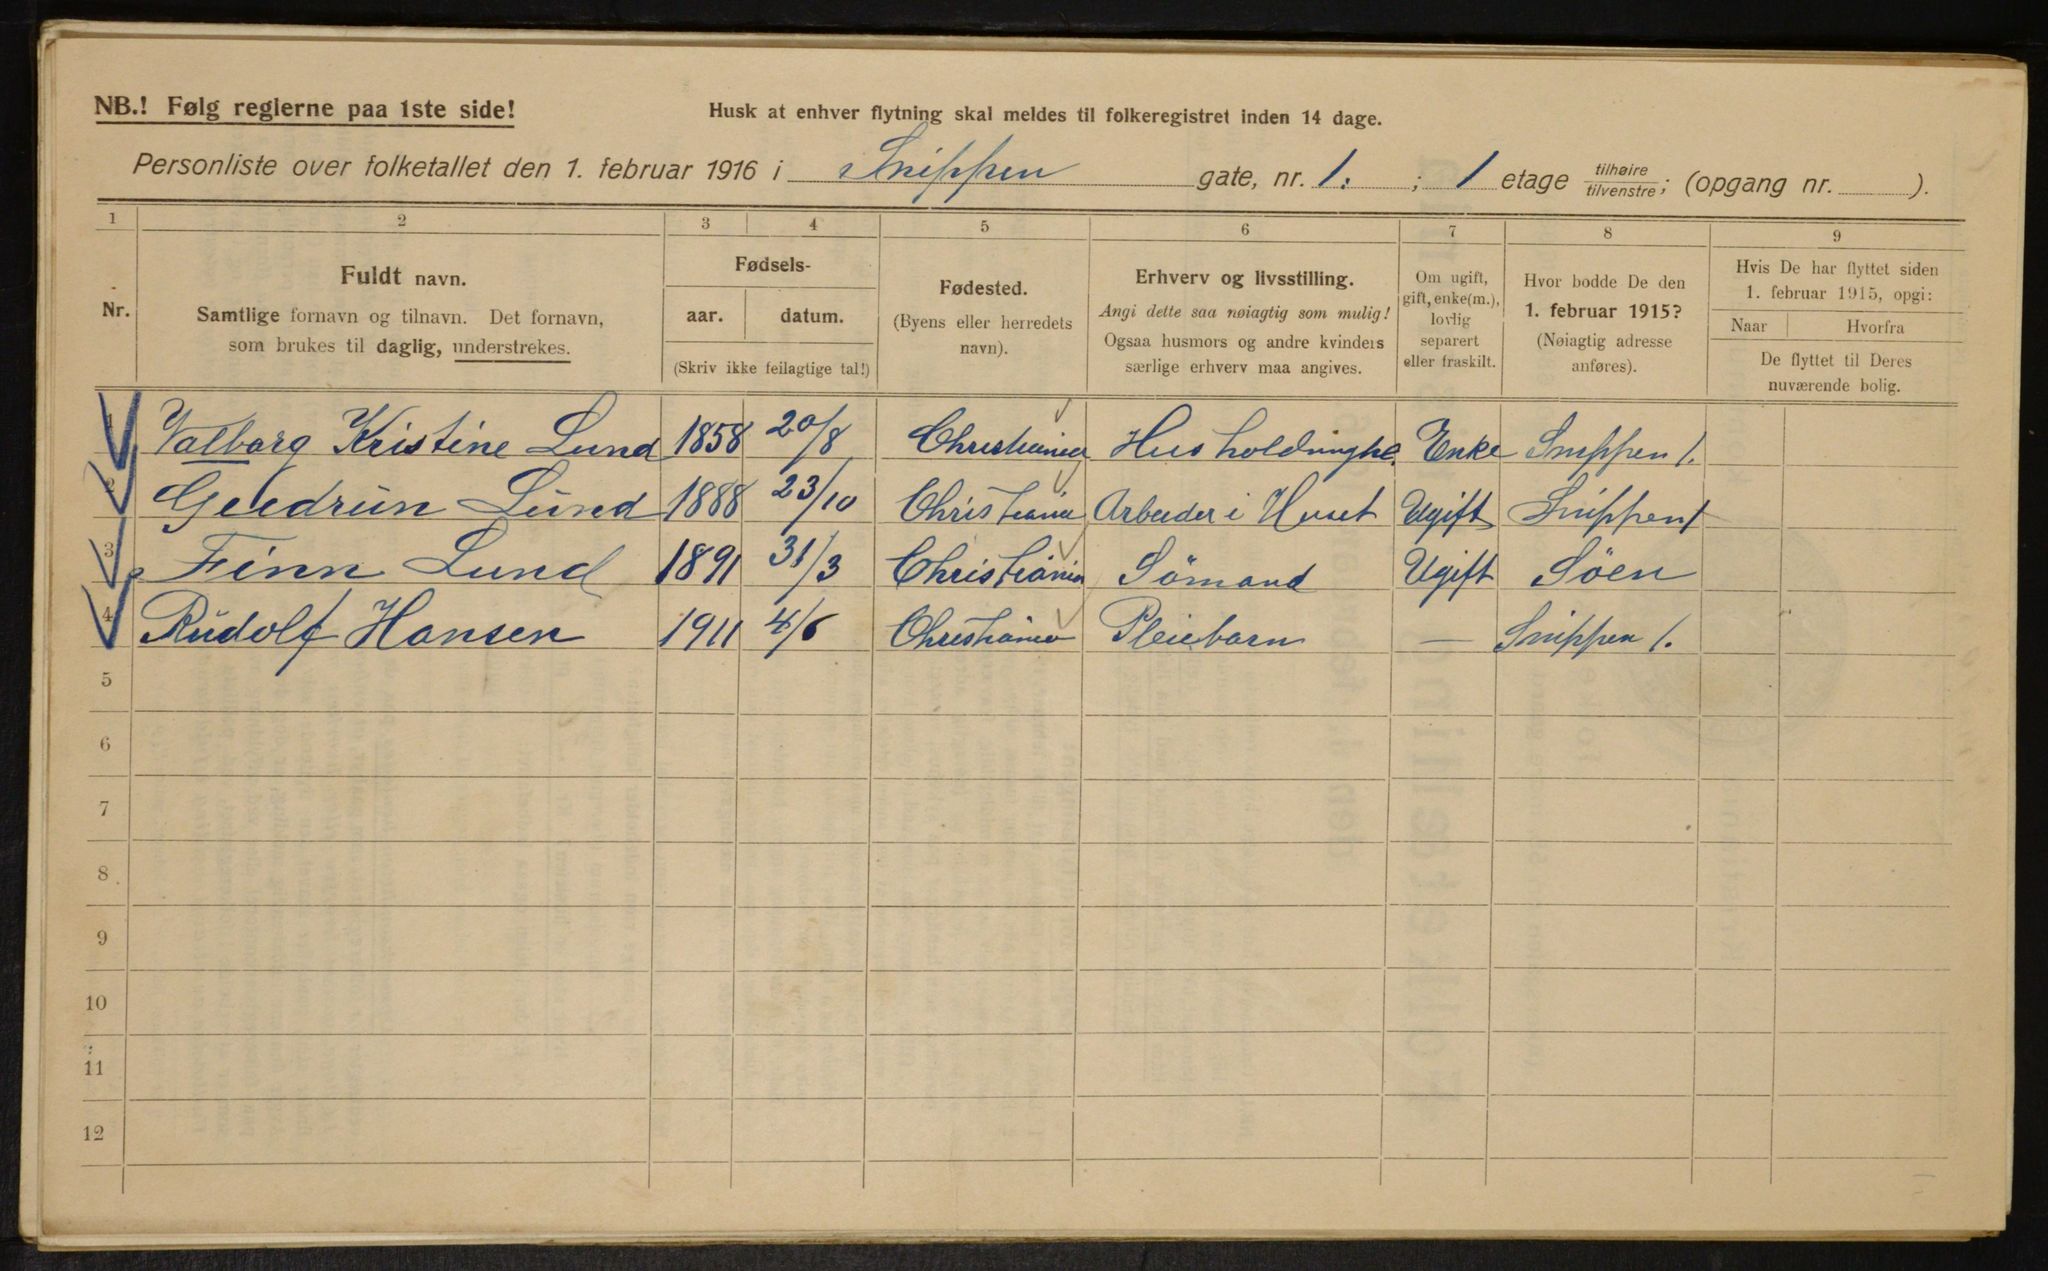 NB.! Følg reglerne paa 1ste side!
Husk at enhver flytning skal meldes til folkeregistret inden 14 dage.
Personliste over folketallet den 1. februar 1916 i Snippen gate, nr. 1. ; 1 etage tilhøire/tilvenstre; (opgang nr. ).
1 2 3 4 5 6 7 8 9
Nr.
Fuldt navn.
Samtlige fornavn og tilnavn. Det fornavn,
som brukes til daglig, understrekes.
Fødsels-
aar. datum.
(Skriv ikke feilagtige tal!)
Fødested.
(Byens eller herredets
navn).
Erhverv og livsstilling.
Angi dette saa nøiagtig som mulig!
Ogsaa husmors og andre kvinders
særlige erhverv maa angives.
Om ugift,
gift, enke(m.),
lovlig
separert
eller fraskilt.
Hvor bodde De den
1. februar 1915?
(Nøiagtig adresse
anføres).
Hvis De har flyttet siden
1. februar 1915, opgi:
Naar Hvorfra
De flyttet til Deres
nuværende bolig.
1 Valborg Kristine Lund 1858 20/8 Christiania Husholdningbe. Enke Snippen 1.
2 Guedrun Lund 1888 23/10 Christiania Arbeider i Huset Ugift Snippen 1
3 Finn Lund 1891 31/3 Christiania Sömand Ugift Söen
4 Rudolf Hansen 1911 4/6 Christiania Pleiebarn — Snippen 1.
5
6
7
8
9
10
11
12